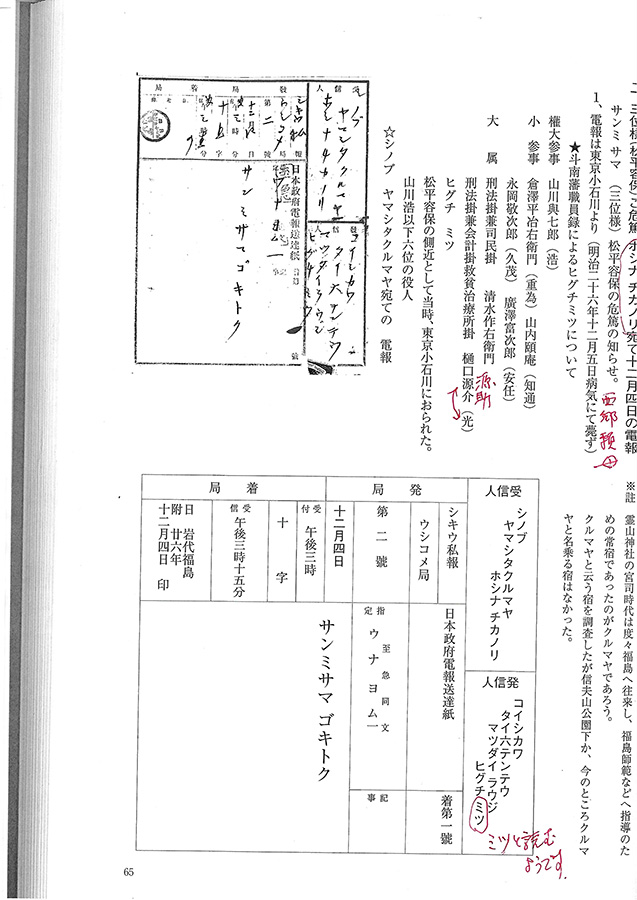 二、三位様(松平容保)ご危篤 ホシナ チカノリ宛て十二月四日の電報
サンミサマ （三位様） 松平容保の危篤の知らせ。 西郷頼母
1、電報は東京小石川より（明治二十六年十二月五日病気にて薨ず）
★斗南藩職員録によるヒグチミツについて
権大参事 山川與七郎（浩）
小 参事 倉澤平冶右衛門（重為）山内頤庵（知通）
永岡敬次郎（久茂）廣澤富次郎（安任）
大 属 刑法掛兼司民掛 清水作右衛門 源助
刑法掛兼会計掛救貧治療所掛 樋口源介（光）
ヒグチ ミツ
松平容保の側近として当時、東京小石川におられた。
山川浩以下六位の役人
☆シノブ ヤマシタクルマヤ宛ての 電報
受信人
シノブ
ヤマシタクルマヤ
ホシナチカノリ
発信人
コイシカワ
タイ六テンテウ
マツダイラウジ
ヒグチミツ
発局
着局
第二號
日本政府電報送達紙
サンミサマゴキトク
※註 霊山神社の宮司時代は度々福島へ往来し、福島師範などへ指導のた
めの常宿であったのがクルマヤであろう。
クルマヤと云う宿を調査したが信夫山公園下か、今のところクルマ
ヤと名乗る宿はなかった。
受信人
シノブ
ヤマシタクルマヤ
ホシナ チカノリ
発信人
コイシカワ
タイ六テンテウ
マツダイ ラウジ
ヒグチ ミツ
ミツと読む
ようです。
発局
シキウ私報
ウシコメ局
第二號
十二月四日
日本政府電報送達紙
着第一號
指定
至急同文
ウナヨムー
記事
着局
受付 午後三時
十 字
受信 午後三時十五分
日附 岩代福島
廿六年
十二月四日 印
サンミサマ ゴキトク
65